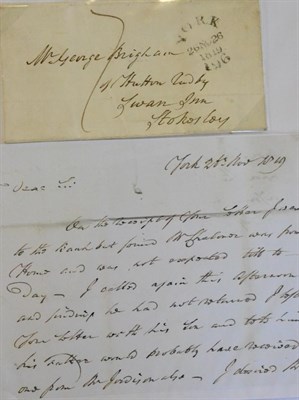 YORK
26 NO 26
1819
196
Mr George Brigham
Hutton Rudby
Swan Inn
Stokesley
York 26 Nov 1819
Dear Sir
On the receipt of Your Letter I went
to the Bank but found Mr was from
Home and was not expected till to
Day — I called again this Afternoon
and finding he had not returned I left
Your Letter with his Son and told him
his Father would probably have received
one from Mr Jordison also — I desired